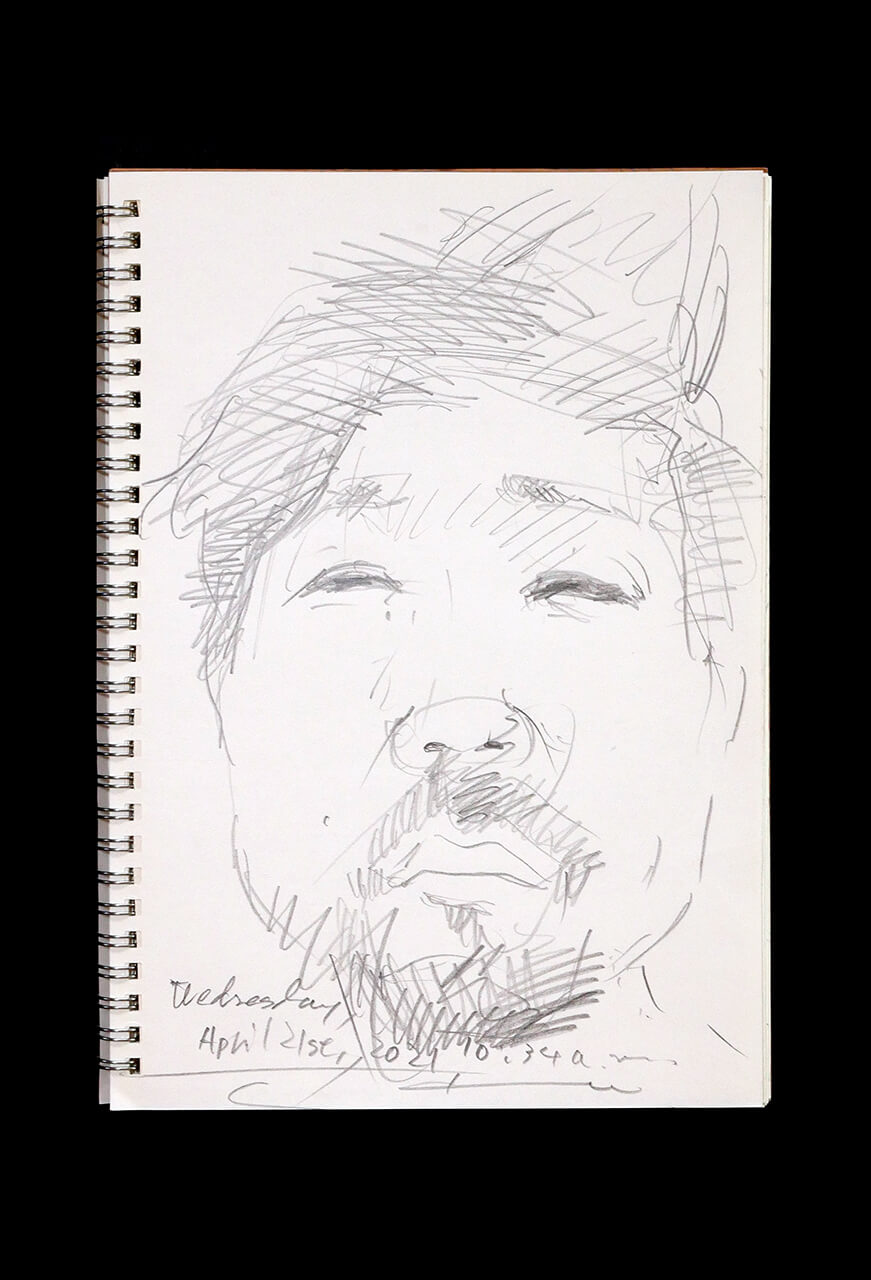 Wednesday,
April 21st, 2021 10:34 a.m.